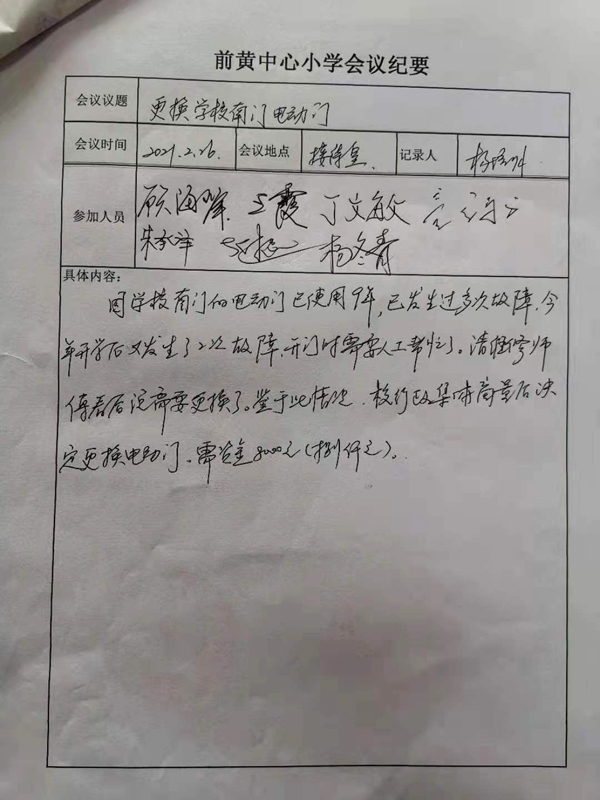 前黄中心小学会议纪要
会议议题 更换学校南门电动门
会议时间 2021.2.26. 会议地点 接待室 记录人 杨
参加人员 顾海 王霞 丁文敏
朱 杨冬青
具体内容:
因学校南门的电动门已使用9年,已发生过多次故障,今
年开学后又发生了2次故障,开门时需要人工帮忙了。请维修师
傅看后说需要更换了。鉴于此情况,校行政集体商量后决
定更换电动门,需资金8000元(捌仟元)。